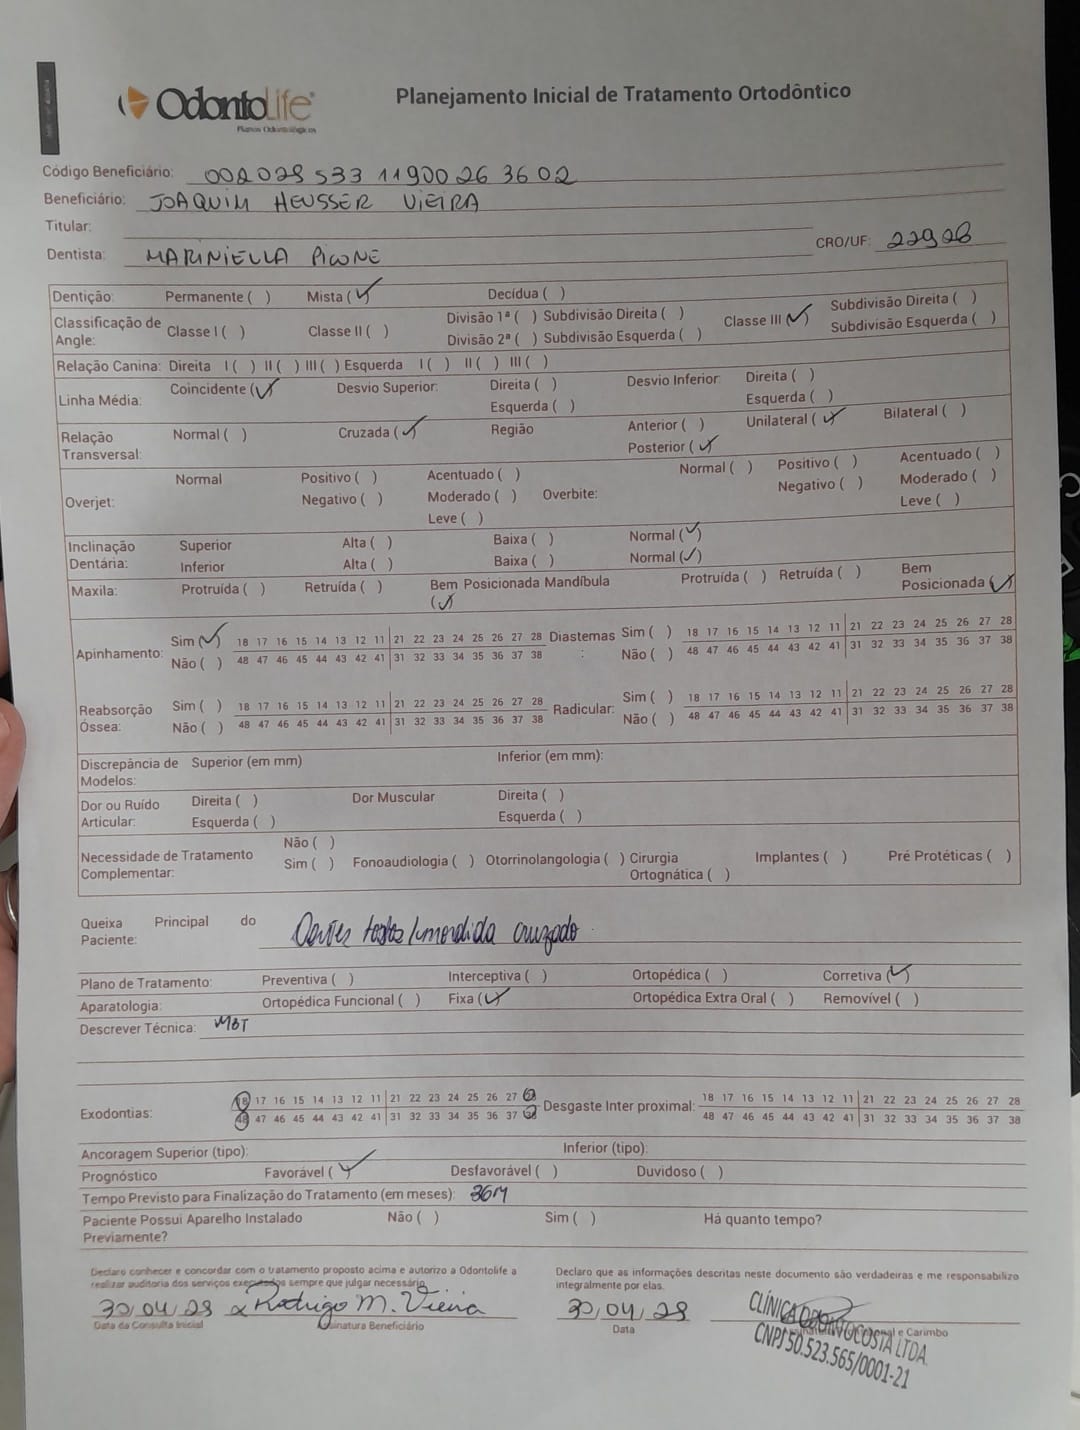 OdontoLife
Planos Odontológicos
Planejamento Inicial de Tratamento Ortodôntico
Código Beneficiário: 002025533 11900 26 3602
Beneficiário: JOAQUIM HEUSSER VIEIRA
Titular:
Dentista: MARINIELLA PICONE CRO/UF: 22928
Dentição: Permanente ( ) Mista (✓) Decídua ( )
Classificação de Angle: Classe I ( ) Classe II ( ) Divisão 1ª ( ) Subdivisão Direita ( ) Classe III (✓) Subdivisão Direita ( )
Divisão 2ª ( ) Subdivisão Esquerda ( ) Subdivisão Esquerda ( )
Relação Canina: Direita I ( ) II ( ) III ( ) Esquerda I ( ) II ( ) III ( )
Linha Média: Coincidente (✓) Desvio Superior: Direita ( ) Desvio Inferior: Direita ( )
Esquerda ( ) Esquerda ( )
Relação Transversal: Normal ( ) Cruzada (✓) Região Anterior ( ) Unilateral (✓) Bilateral ( )
Posterior (✓)
Overjet: Normal Positivo ( ) Acentuado ( ) Overbite: Normal ( ) Positivo ( ) Acentuado ( )
Negativo ( ) Moderado ( ) Negativo ( ) Moderado ( )
Leve ( ) Leve ( )
Inclinação Dentária: Superior Alta ( ) Baixa ( ) Normal (✓)
Inferior Alta ( ) Baixa ( ) Normal (✓)
Maxila: Protruída ( ) Retruída ( ) Bem Posicionada (✓) Mandíbula Protruída ( ) Retruída ( ) Bem Posicionada (✓)
Apinhamento: Sim (✓) 18 17 16 15 14 13 12 11 21 22 23 24 25 26 27 28 Diastemas: Sim ( ) 18 17 16 15 14 13 12 11 21 22 23 24 25 26 27 28
Não ( ) 48 47 46 45 44 43 42 41 31 32 33 34 35 36 37 38 Não ( ) 48 47 46 45 44 43 42 41 31 32 33 34 35 36 37 38
Reabsorção Óssea: Sim ( ) 18 17 16 15 14 13 12 11 21 22 23 24 25 26 27 28 Radicular: Sim ( ) 18 17 16 15 14 13 12 11 21 22 23 24 25 26 27 28
Não ( ) 48 47 46 45 44 43 42 41 31 32 33 34 35 36 37 38 Não ( ) 48 47 46 45 44 43 42 41 31 32 33 34 35 36 37 38
Discrepância de Modelos: Superior (em mm) Inferior (em mm):
Dor ou Ruído Articular: Direita ( ) Dor Muscular Direita ( )
Esquerda ( ) Esquerda ( )
Necessidade de Tratamento Complementar: Não ( )
Sim ( ) Fonoaudiologia ( ) Otorrinolangologia ( ) Cirurgia Ortognática ( ) Implantes ( ) Pré Protéticas ( )
Queixa Principal do Paciente: Dentes tortos/mordida cruzado
Plano de Tratamento: Preventiva ( ) Interceptiva ( ) Ortopédica ( ) Corretiva (✓)
Aparatologia: Ortopédica Funcional ( ) Fixa (✓) Ortopédica Extra Oral ( ) Removível ( )
Descrever Técnica: MBT
Exodontias: 18 17 16 15 14 13 12 11 21 22 23 24 25 26 27 28 Desgaste Inter proximal: 18 17 16 15 14 13 12 11 21 22 23 24 25 26 27 28
48 47 46 45 44 43 42 41 31 32 33 34 35 36 37 38 48 47 46 45 44 43 42 41 31 32 33 34 35 36 37 38
Ancoragem Superior (tipo): Inferior (tipo):
Prognóstico Favorável (✓) Desfavorável ( ) Duvidoso ( )
Tempo Previsto para Finalização do Tratamento (em meses): 36M
Paciente Possui Aparelho Instalado Previamente? Não ( ) Sim ( ) Há quanto tempo?
Declaro conhecer e concordar com o tratamento proposto acima e autorizo a Odontolife a
realizar auditoria dos serviços executados sempre que julgar necessário.
Declaro que as informações descritas neste documento são verdadeiras e me responsabilizo
integralmente por elas.
30/04/25 x Rodrigo M. Vieira 30/04/25
Data da Consulta Inicial Assinatura Beneficiário Data e Carimbo
CLÍNICA ODONTOCOSTA LTDA.
CNPJ 50.523.565/0001-21